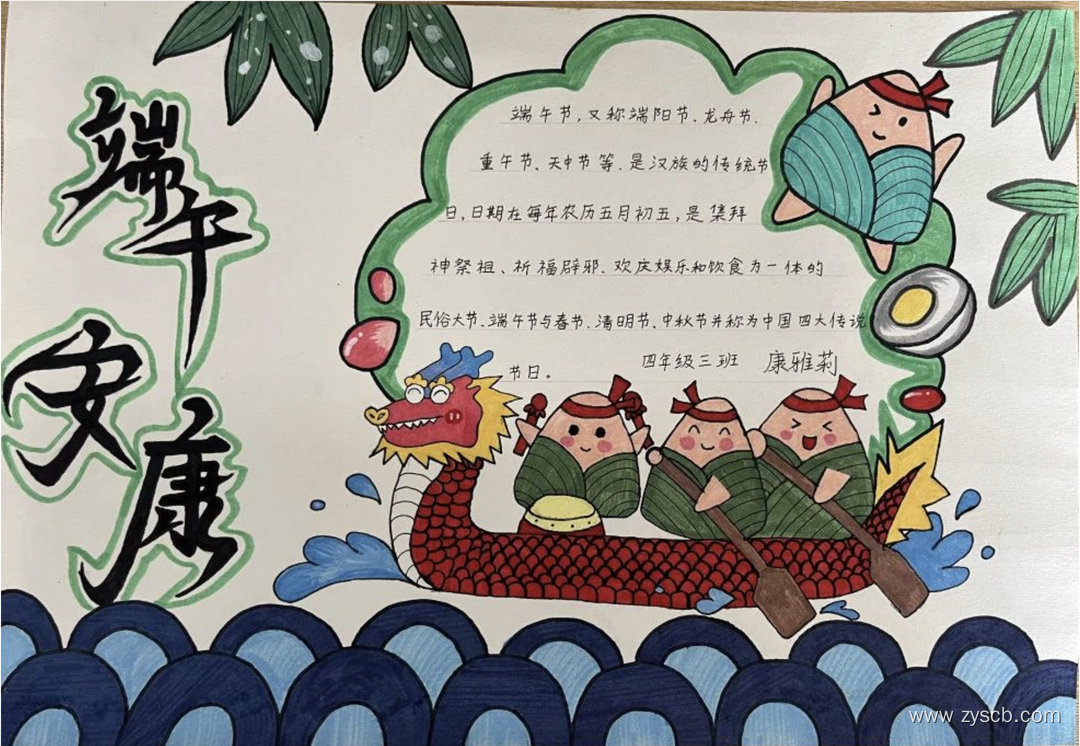 端午安康
端午节,又称端阳节、龙舟节、
重午节、天中节等.是汉族的传统节
日,日期在每年农历五月初五,是集拜
神祭祖、祈福辟邪、欢庆娱乐和饮食为一体的
民俗大节、端午节与春节、清明节、中秋节并称为中国四大传说
节日。
四年级三班 康雅莉
www.zyscb.com